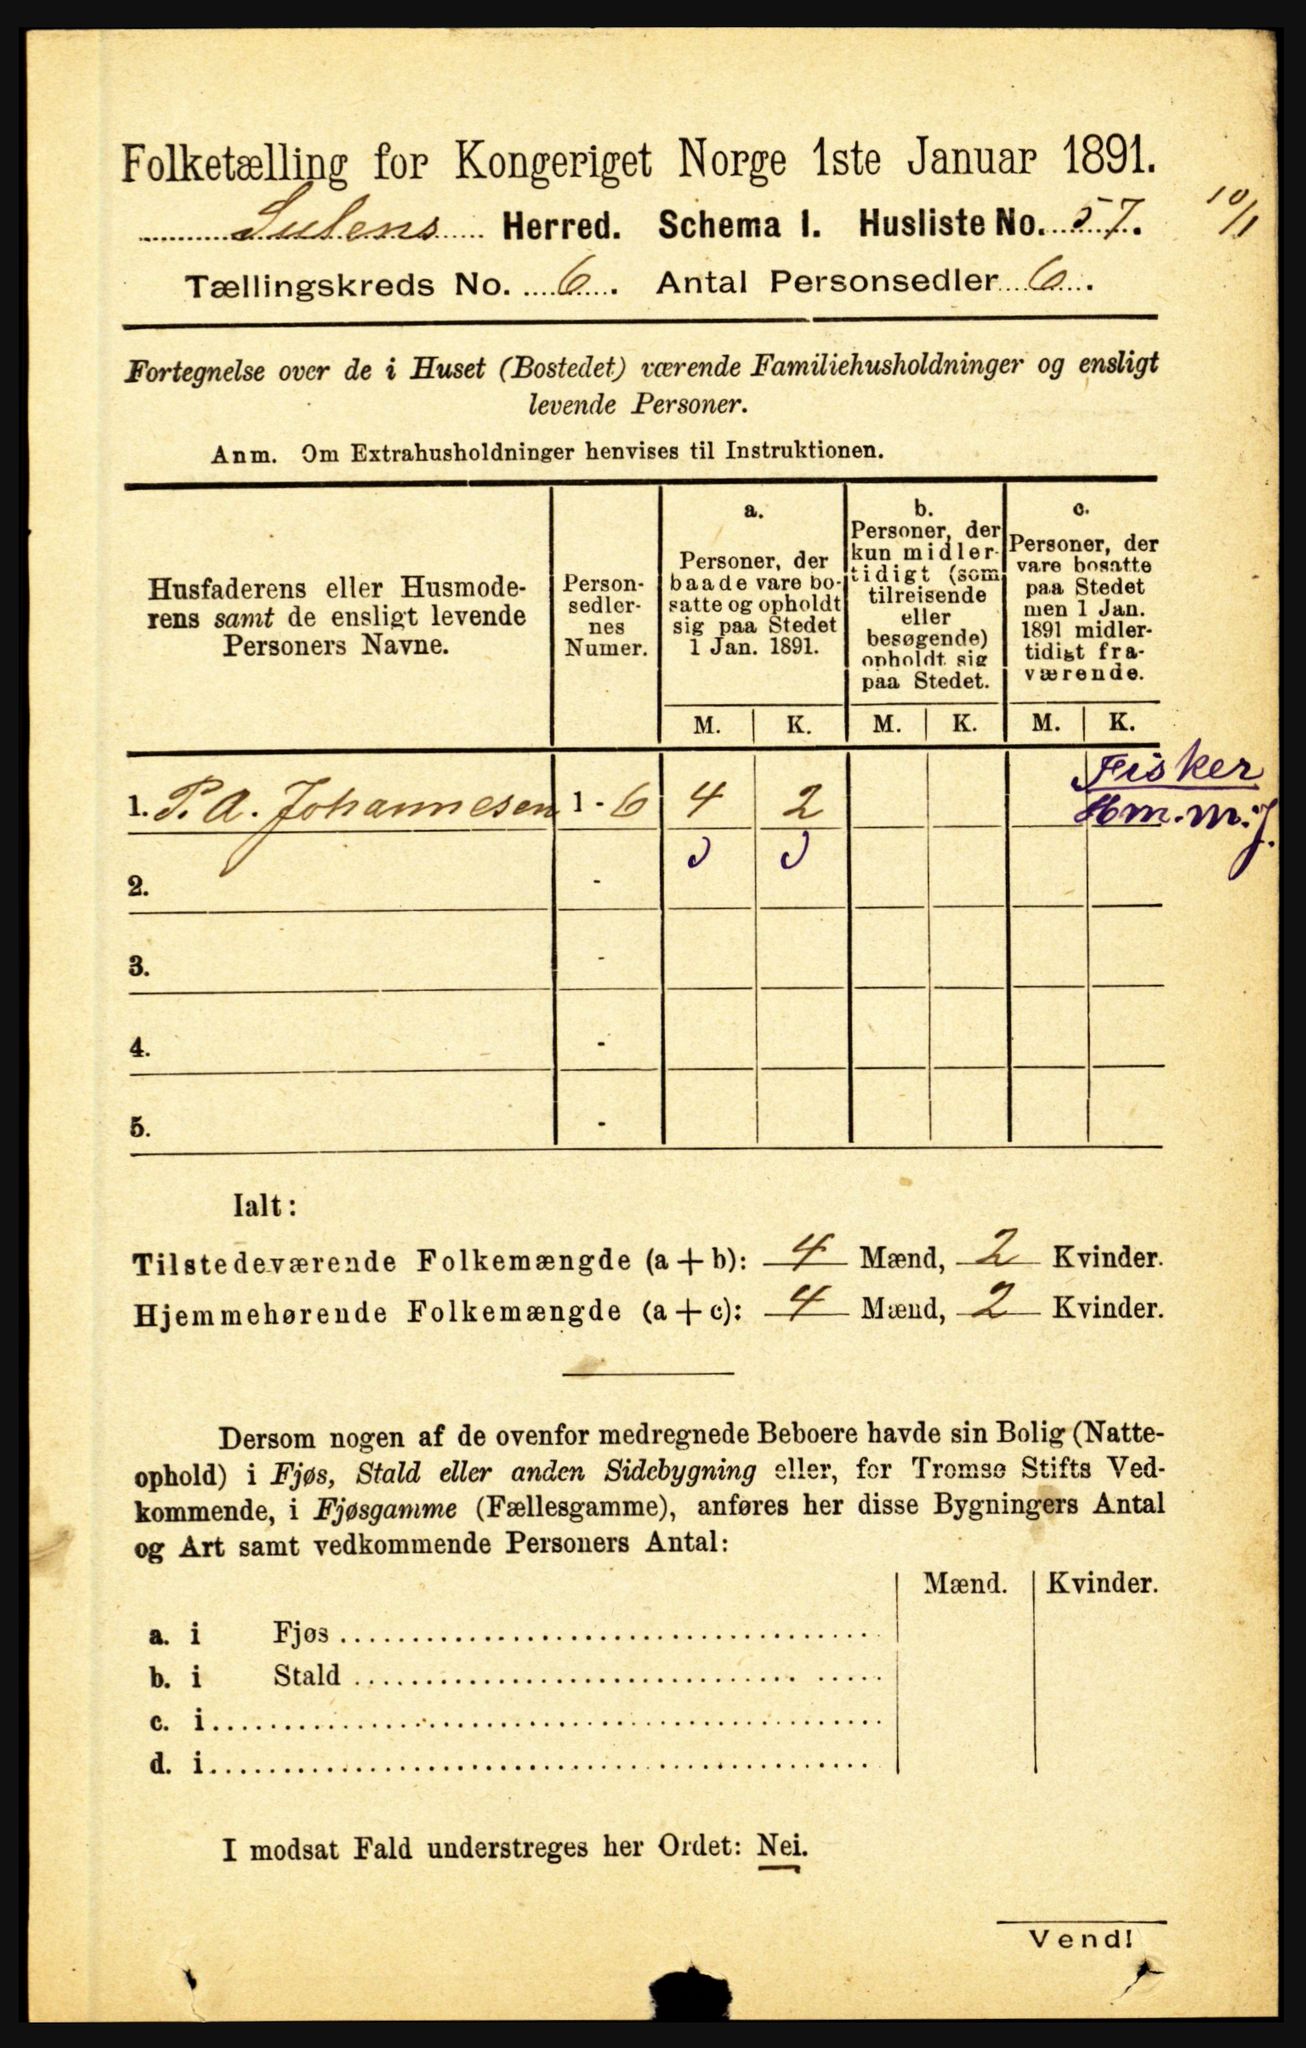 Folketælling for Kongeriget Norge 1ste Januar 1891.
Sulens Herred. Schema I. Husliste No. 57.
10/1
Tællingskreds No. 6. Antal Personsedler 6.
Fortegnelse over de i Huset (Bostedet) værende Familiehusholdninger og ensligt
levende Personer.
Anm. Om Extrahusholdninger henvises til Instruktionen.
Husfaderens eller Husmode-
rens samt de ensligt levende
Personers Navne.
Person-
sedler-
nes
Numer.
a.
Personer, der
baade vare bo-
satte og opholdt
sig paa Stedet
1 Jan. 1891.
b.
Personer, der
kun midler-
tidigt (som
tilreisende
eller
besøgende)
opholdt sig
paa Stedet.
c.
Personer, der
vare bosatte
paa Stedet
men 1 Jan.
1891 midler-
tidigt fra-
værende.
M. K. M. K. M. K.
1. P. A. Johannesen 1 - 6 4 2
Fisker
Hm. m. J.
2. -
3. -
4. -
5. -
Ialt:
Tilstedeværende Folkemængde (a + b): 4 Mænd, 2 Kvinder.
Hjemmehørende Folkemængde (a + c): 4 Mænd, 2 Kvinder.
Dersom nogen af de ovenfor medregnede Beboere havde sin Bolig (Natte-
ophold) i Fjøs, Stald eller anden Sidebygning eller, for Tromsø Stifts Ved-
kommende, i Fjøsgamme (Fællesgamme), anføres her disse Bygningers Antal
og Art samt vedkommende Personers Antal:
Mænd. Kvinder.
a. i Fjøs
b. i Stald
c. i
d. i
I modsat Fald understreges her Ordet: Nei.
Vend!